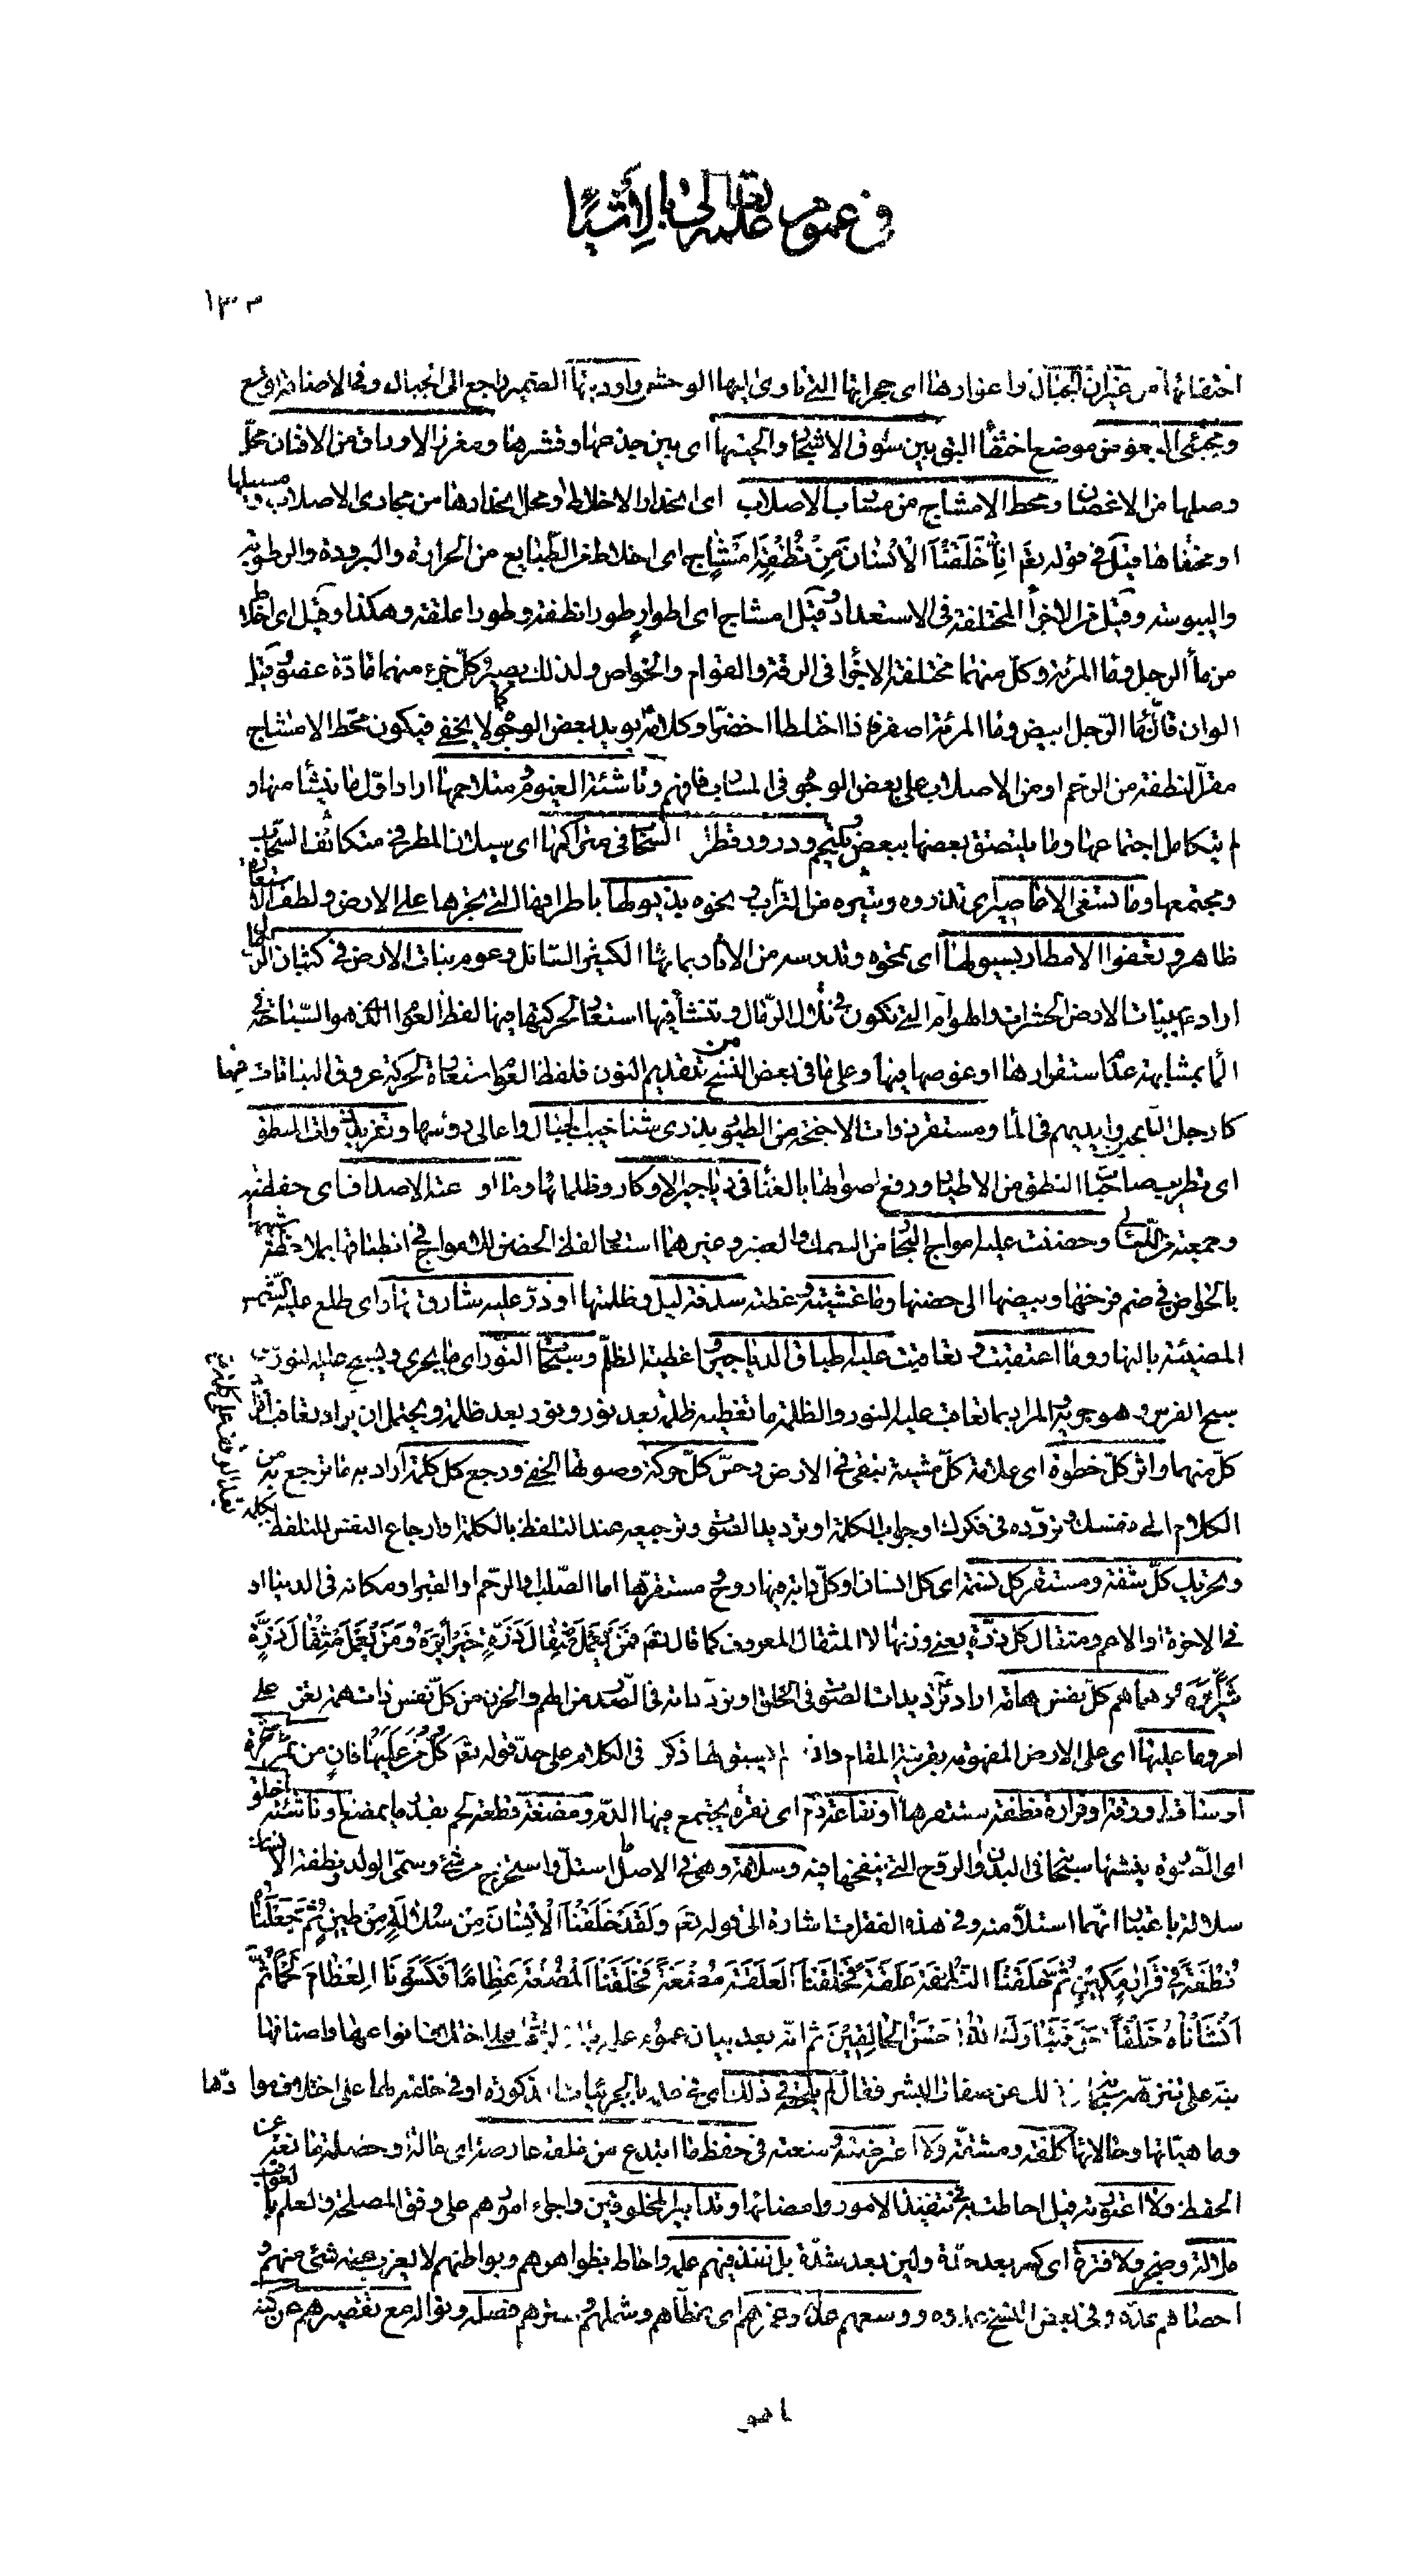 في عموم علمه تعالى بالأشياء
١٣٠٣
اختفائها من غيران الجبال واغوارها اي حجراتها التي تاوى اليها الوحش واوديتها الضمير راجع الى الجبال وفي الاضافة توسع
ومختبئ البعوض موضع اختفاء البق بين سوق الاشجار والحيتها اي بين جذعها وقشرها ومغرز الاوراق من الافنان محل
وصلها من الاغصان ومحط الامشاج من مسارب الاصلاب اي انحدار الاخلاط او محل انحدارها من مجاري الاصلاب ومسيلها
او مخفاها قيل في قوله تعم إِنَّا خَلَقْنَا الْإِنْسَانَ مِنْ نُطْفَةٍ أَمْشَاجٍ اي اخلاط من الطبايع من الحرارة والبرودة والرطوبة
واليبوسة وقيل من الاجزاء المختلفة في الاستعداد وقيل امشاج اي اطوار طورا نطفة وطورا علقة وهكذا وقيل اي اخلاط
من ماء الرجل وماء المرئة وكل منهما مختلفة الاجزاء في الرقة والقوام والخواص ولذلك يصير كل جزء منهما مادة عضو وقيل
الوان فان ماء الرجل ابيض وماء المرئة اصفر فاذا اختلطا اخضرا وكلامه يؤيد بعض الوجوه كما لا يخفى فيكون محط الامشاج
مقر النطفة من الرحم او من الاصلاب على بعض الوجوه في المسارب فافهم وناشئة الغيوم ومتلاحمها اراد اول ما ينشأ منها و
لم يتكامل اجتماعها وما يلتصق بعضها ببعض ويلتحم ودرور قطر السحاب في متراكمها اي سيلان المطر في متكاثف السحاب
ومجتمعها وما تسفى الاعاصير اي تذروه وتثيره من التراب ونحوه بذيولها باطرافها التي تجرها على الارض ولطف الاستعارة
ظاهر وتعفوا الامطار بسيولها اي تمحوه وتدرسه من الآثار بمائها الكثير السائل وعوم بنات الارض في كثبان الرمال
اراد ع ببنات الارض الحشرات والهوام التي تكون في تلال الرمال وتنشأ فيها استعار لحركتها فيها لفظ العوم الذي هو السباحة في
الماء بمشابهة عدم استقرارها او غوصها فيها وعلى ما في بعض النسخ من تقديم النون فلفظ العوم استعارة لحركة عروق النباتات فيها
كارجل السابحين وايديهم في الماء ومستقر ذوات الاجنحة من الطيور بذرى شناخيب الجبال واعالي رؤسها وتغريد ذوات المنطق
اي تطريب صاحبات النطق من الاطيار ورفع اصواتها بالغناء في دياجير الاوكار وظلماتها وما اوعته الاصداف اي حفظته
وجمعته من اللئالي وحضنت عليه امواج البحار من السمك والعنبر وغيرهما استعار لفظ الحضن للامواج في انطباقها بملاحظة شبهها
بالحواضن في ضم فرخها وبيضها الى حضنها وما غشيته وغطته سدفة ليل وظلمتها او ذر عليه شارق نهار اي طلع عليه الشمس
المضيئة بالنهار وما اعتقبت وتعاقبت عليه اطباق الدياجير واغطية الظلم وسبحات النور اي ما يجري ويسبح عليه النور من
سبح الفرس وهو جريه والمراد بما تعاقب عليه النور والظلمة ما تغطيه ظلمة بعد نور ونور بعد ظلمة ويحتمل ان يراد تعاقب افراد
كل منهما واثر كل خطوة اي علامة كل مشية تبقى في الارض وحس كل حركة وصوتها الخفي ورجع كل كلمة اراد به ما ترجع به من
الكلام الى نفسك وتردده في فكرك او جواب الكلمة او ترديد الصوت وترجيعه عند التلفظ بالكلمة او ارجاع النفس للتلفظ بكلمة
وتحريك كل شفة ومستقر كل نسمة اي كل انسان او كل دابة فيها روح ومستقرها اما الصلب او الرحم او القبر او مكانه في الدنيا او
في الاخرة او الاعم ومثقال كل ذرة يعني وزنها لا المثقال المعروف كما قال تعم فَمَنْ يَعْمَلْ مِثْقَالَ ذَرَّةٍ خَيْرًا يَرَهُ وَمَنْ يَعْمَلْ مِثْقَالَ ذَرَّةٍ
شَرًّا يَرَهُ وهماهم كل نفس هامة اراد ترديدات الصوت في الحلق او تردداته في الصدر من الهم والحزن من كل نفس ذات همة تعزم على
امر وما عليها اي على الارض المفهومة بقرينة المقام وان لم يسبق لها ذكر في الكلام على حد قوله تعم كُلُّ مَنْ عَلَيْهَا فَانٍ من ثمر شجرة
او ساقط ورقة او قرارة نطفة ومستقرها او نقاعة دم اي نقرة يجتمع فيها الدم ومضغة قطعة لحم بقدر ما يمضغ او ناشئة خلق
اي الصورة ينشئها سبحانه في البدن او الروح التي ينفخها فيه وسلالة وهي في الاصل ما استل واستخرج من شيء وسمى الولد ونطفة الانسان
سلالة باعتبار انهما استلا منه وفي هذه الفقرات اشارة الى قوله تعم وَلَقَدْ خَلَقْنَا الْإِنْسَانَ مِنْ سُلَالَةٍ مِنْ طِينٍ ثُمَّ جَعَلْنَاهُ
نُطْفَةً فِي قَرَارٍ مَكِينٍ ثُمَّ خَلَقْنَا النُّطْفَةَ عَلَقَةً فَخَلَقْنَا الْعَلَقَةَ مُضْغَةً فَخَلَقْنَا الْمُضْغَةَ عِظَامًا فَكَسَوْنَا الْعِظَامَ لَحْمًا ثُمَّ
أَنْشَأْنَاهُ خَلْقًا آخَرَ فَتَبَارَكَ اللَّهُ أَحْسَنُ الْخَالِقِينَ ثم انه بعد بيان عموم علمه بالاشياء على اختلاف انواعها واصنافها
نبه على تنزهه سبحانه في ذلك عن صفات البشر فقال لم يلحقه في ذلك اي في علمه بالجزئيات المذكورة او في خلقته لها على اختلاف موادها
وماهياتها وحالاتها كلفة ومشقة ولا اعترضته ومنعته في حفظ ما ابتدع من خلقه عارضة اي حالة وخصلة مانعة عن
الحفظ ولا اعتورته قيل احاطت به في تنفيذ الامور وامضائها وتدابير المخلوقين واجراء امورهم على وفق المصلحة والعلم بالعواقب
ملالة وضجر ولا فترة اي كسر بعد حدة ولين بعد شدة بل نفذ فيهم علمه واحاط بظواهرهم وبواطنهم لا يعزب عنه شيء منهم و
احصاهم عده وفي بعض النسخ عدده ووسعهم عدله وغمرهم اي غطاهم وشملهم وسترهم فضله ونواله مع تقصيرهم عن كنه
ما هو